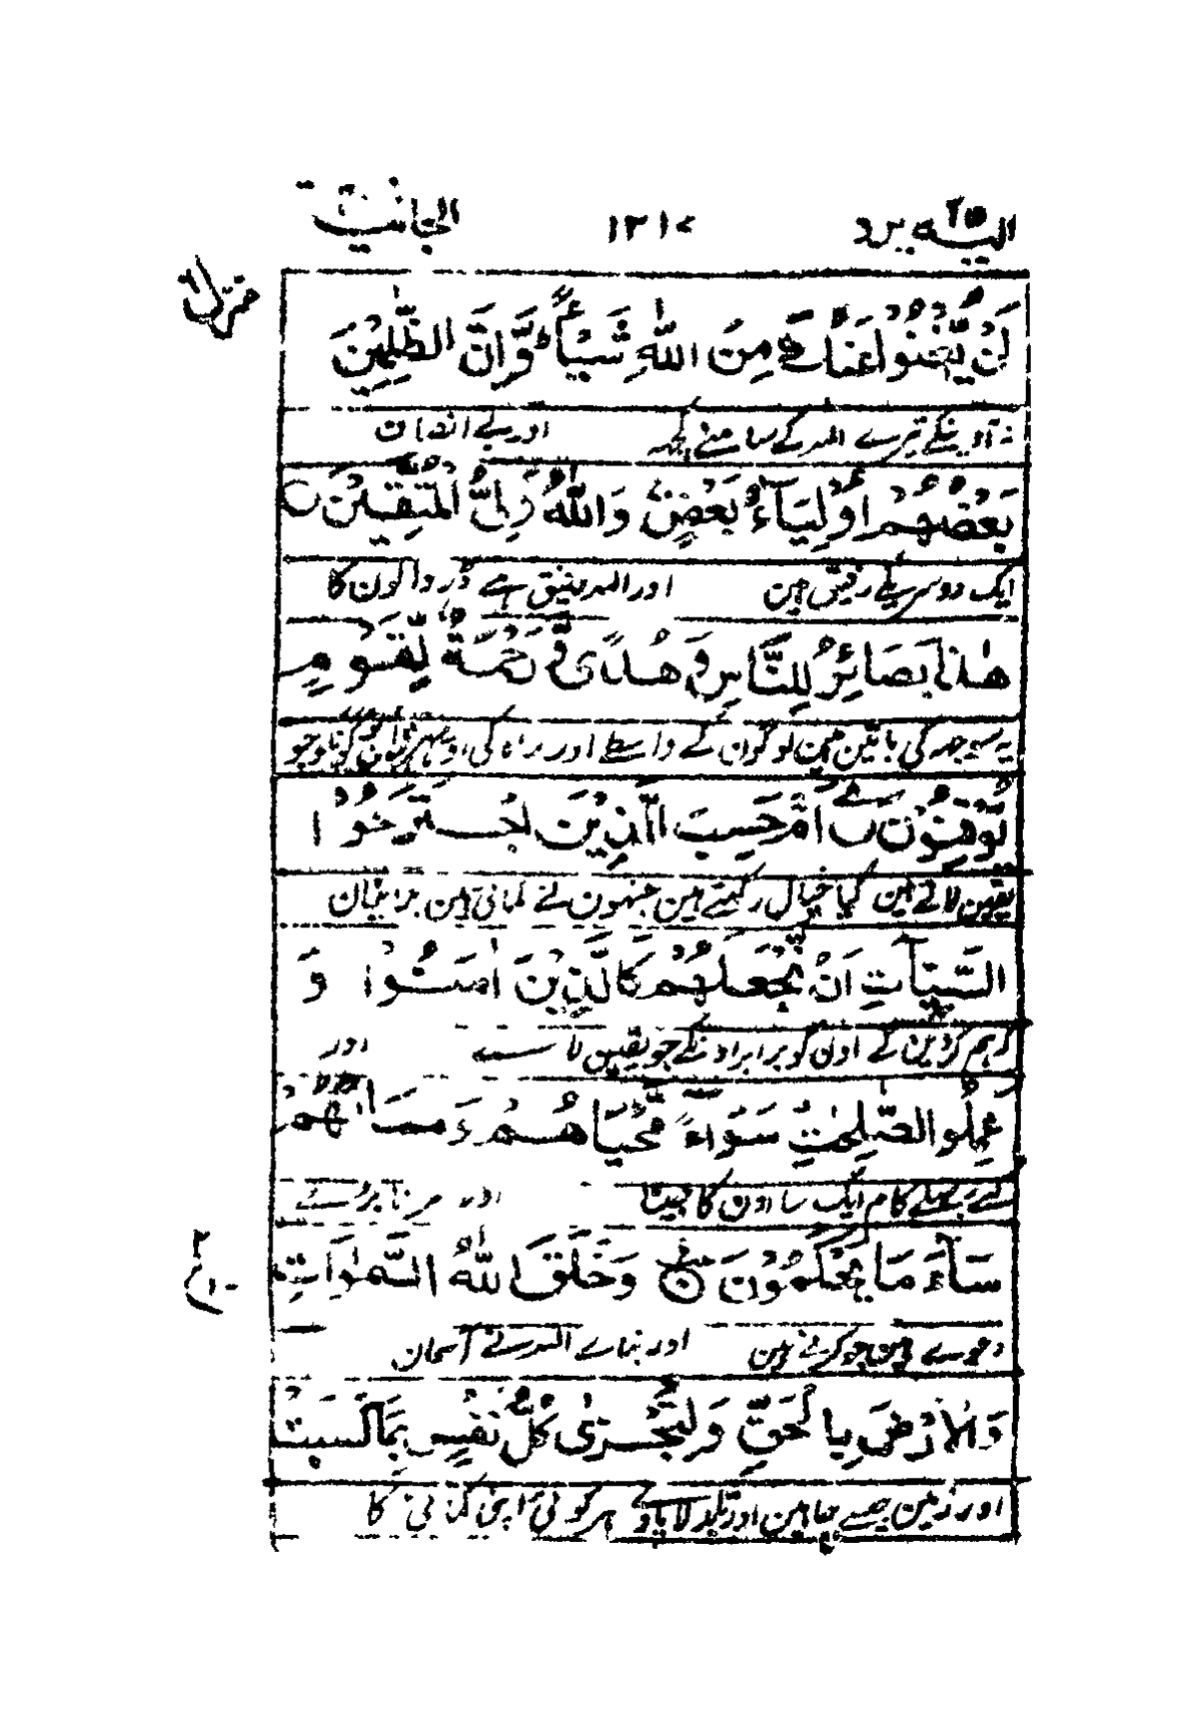 الیہ یرد ٢٥ ١٣١٠ الجاثیۃ
منزل ٦
لَنْ يُّغْنُوْا عَنْكَ مِنَ اللّٰهِ شَيْـًٔا ؕ وَّاِنَّ الظّٰلِمِيْنَ
نہ آوینگے تیرے اللہ کے سامنے کچھہ اور بے انصاف
بَعْضُهُمْ اَوْلِيَآءُ بَعْضٍ ۚ وَاللّٰهُ وَلِيُّ الْمُتَّقِيْنَ
ایک دوسریکے رفیق ہین اور اللہ رفیق ہے ڈر والون کا
هٰذَا بَصَآئِرُ لِلنَّاسِ وَهُدًى وَّرَحْمَةٌ لِّقَوْمٍ
یہ سوجھہ کی باتین ہین لوگون کے واسطے اور راہ کی اور مہر اون لوگونکو جو
يُّوْقِنُوْنَ اَمْ حَسِبَ الَّذِيْنَ اجْتَرَحُوا
یقین لاتے ہین کیا خیال رکہتے ہین جنہون نے کمائی ہین برائیان
السَّيِّاٰتِ اَنْ نَّجْعَلَهُمْ كَالَّذِيْنَ اٰمَنُوْا وَ
کہ ہم کردین گے اون کو برابر اونکے جو یقین لائے اور
عَمِلُوا الصّٰلِحٰتِ سَوَآءً مَّحْيَاهُمْ وَمَمَاتُهُمْ
کئے بھلے کام ایک سا اون کا جینا اور مرنا برے
سَآءَ مَا يَحْكُمُوْنَ وَخَلَقَ اللّٰهُ السَّمٰوٰتِ
دعوے ہین جو کرتے ہین اور بنائے اللہ نے آسمان
وَالْاَرْضَ بِالْحَقِّ وَلِتُجْزٰى كُلُّ نَفْسٍ بِمَا كَسَبَتْ
اور زمین جیسے چاہین اور تا بدلا پاوے ہر کوئی اپنی کمائی کا